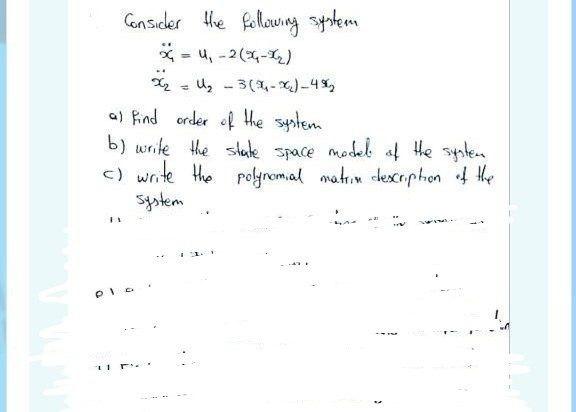 Consider the following system
ẍ₁ = u₁ - 2(x₁-x₂)
ẍ₂ = u₂ - 3(x₁-x₂)-4x₂
a) Find order of the system
b) write the state space model of the system
c) write the polynomial matrix description of the
system